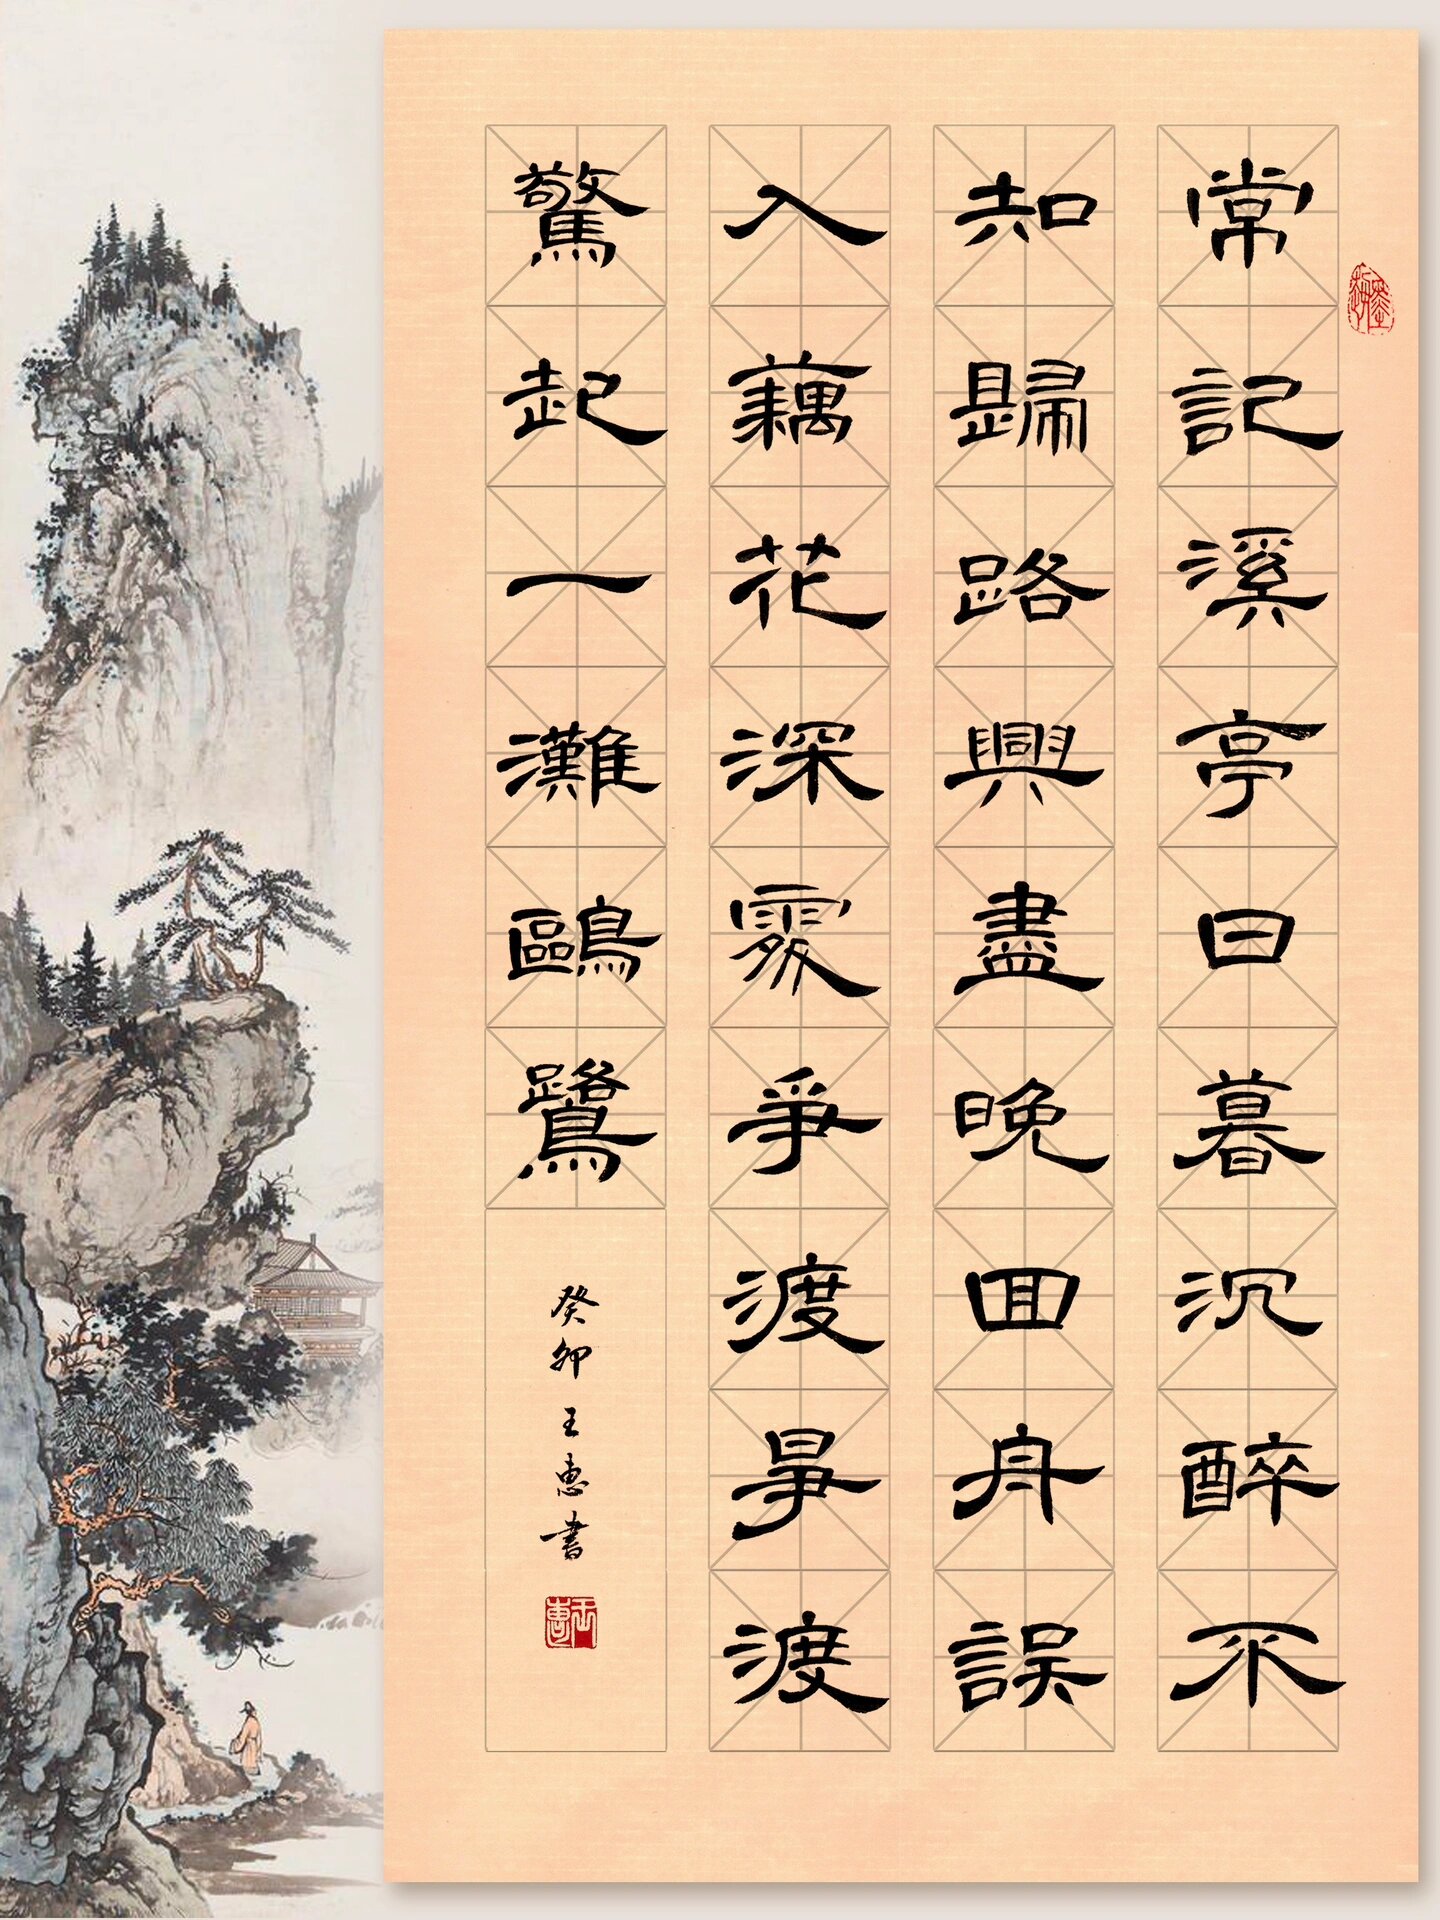 常記溪亭日暮沉醉不
知歸路興盡晚回舟誤
入藕花深處爭渡爭渡
驚起一灘鷗鷺
癸卯王惠書
王惠